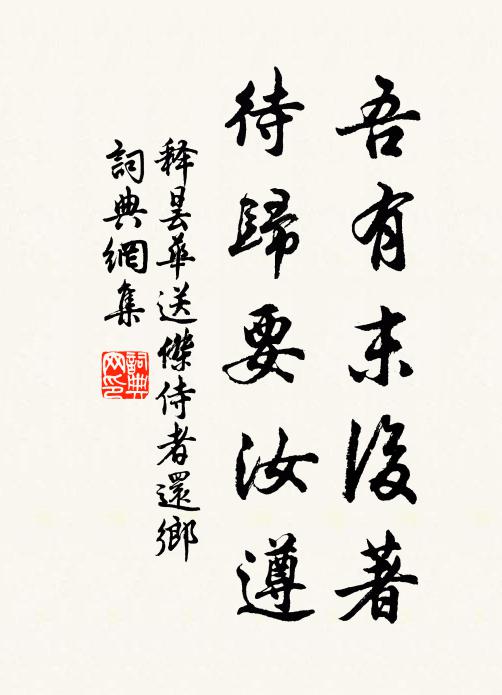 吾有末後著
待歸要汝遵
释曇華送傑侍者還鄉
詞典網集
詞典网印